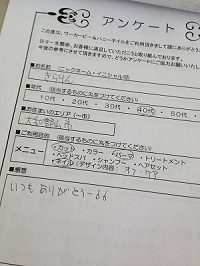 アンケート
この度は、ワーカービー&ハニーネイルをご利用頂きまして誠にありがとう
日々一生懸命、お客様に満足していただこうと取り組んでおります。
今後の参考にさせて頂きますので、どうかアンケートにご協力お願いいたし
■お名前 (ニックネーム・イニシャル可)
■年代 (該当するものに丸をつけてください)
10代・20代・30代・40代・50代・
■お住まいのエリア(～市)
大和郡山市
■ご利用目的 (該当するものに丸をつけてください)
メニュー
・カット・カラー・パーマ・トリートメント
・ヘッドスパ・シャンプー・ヘアセット
・ネイル(デザイン内容:オフ・ケア
■感想
いつもありがとうー